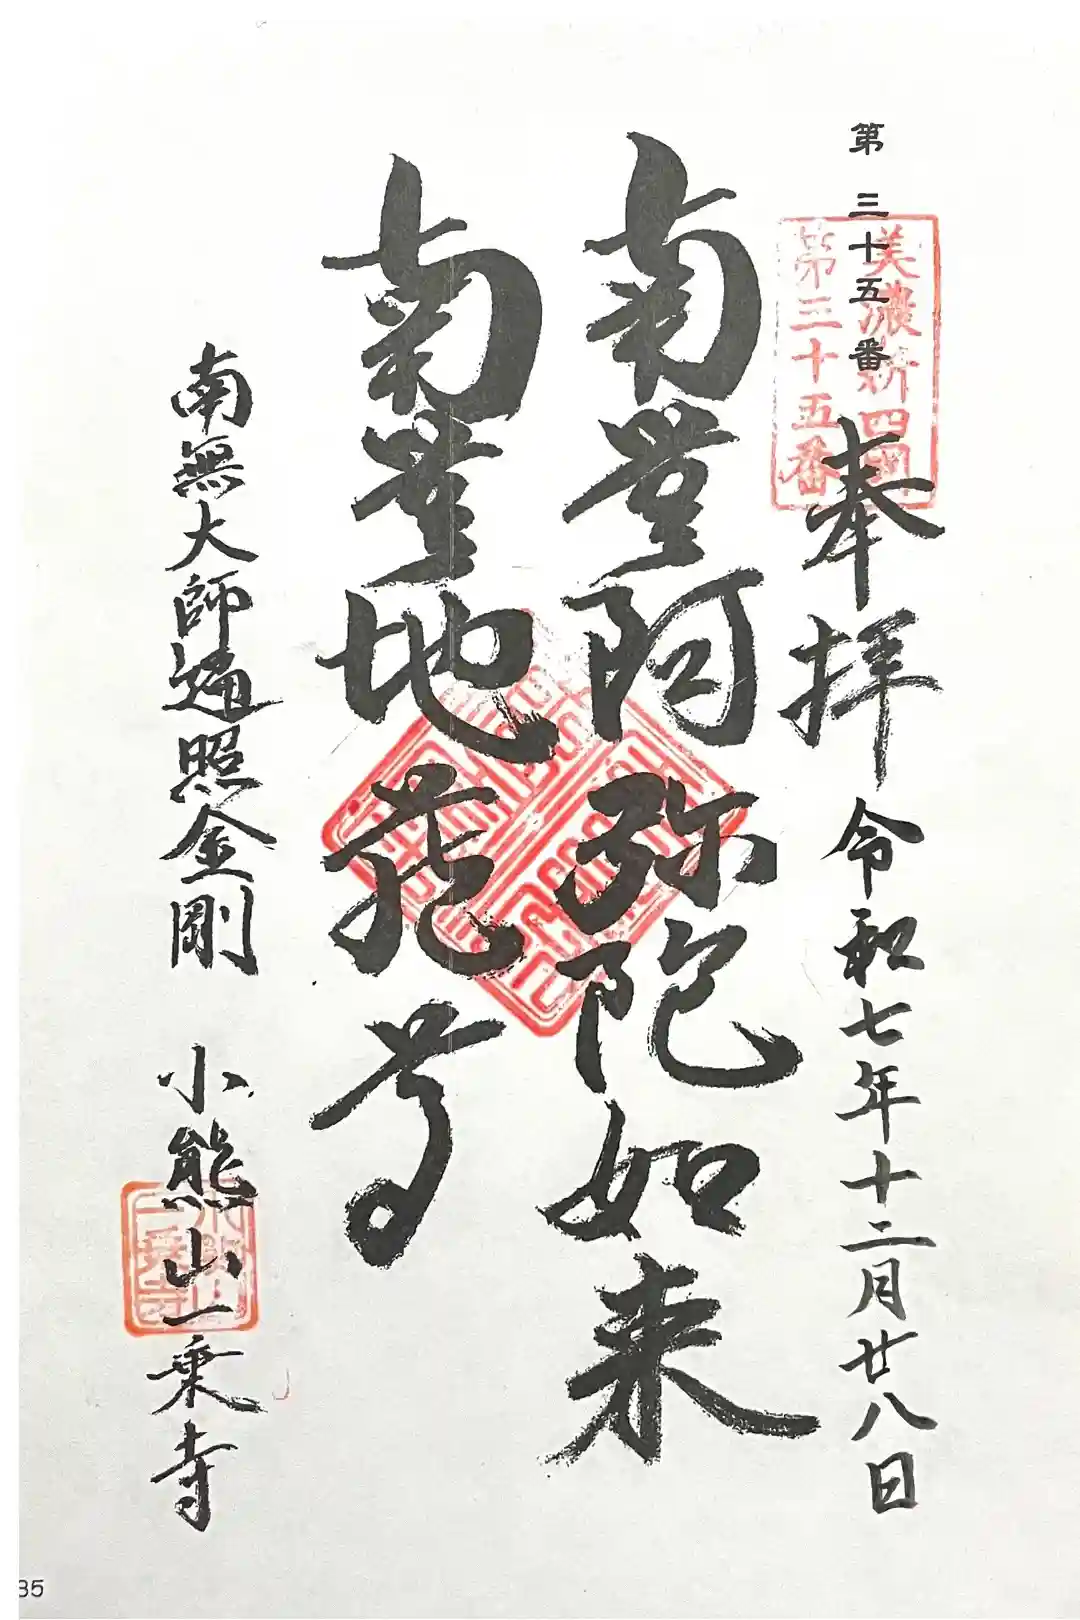 第三十五番
美濃新四国
第三十五番
奉拝 令和七年十二月廿八日
南無阿弥陀如来
南無地蔵尊
南無大師遍照金剛 小熊山一乗寺
小熊山
一乗寺
35